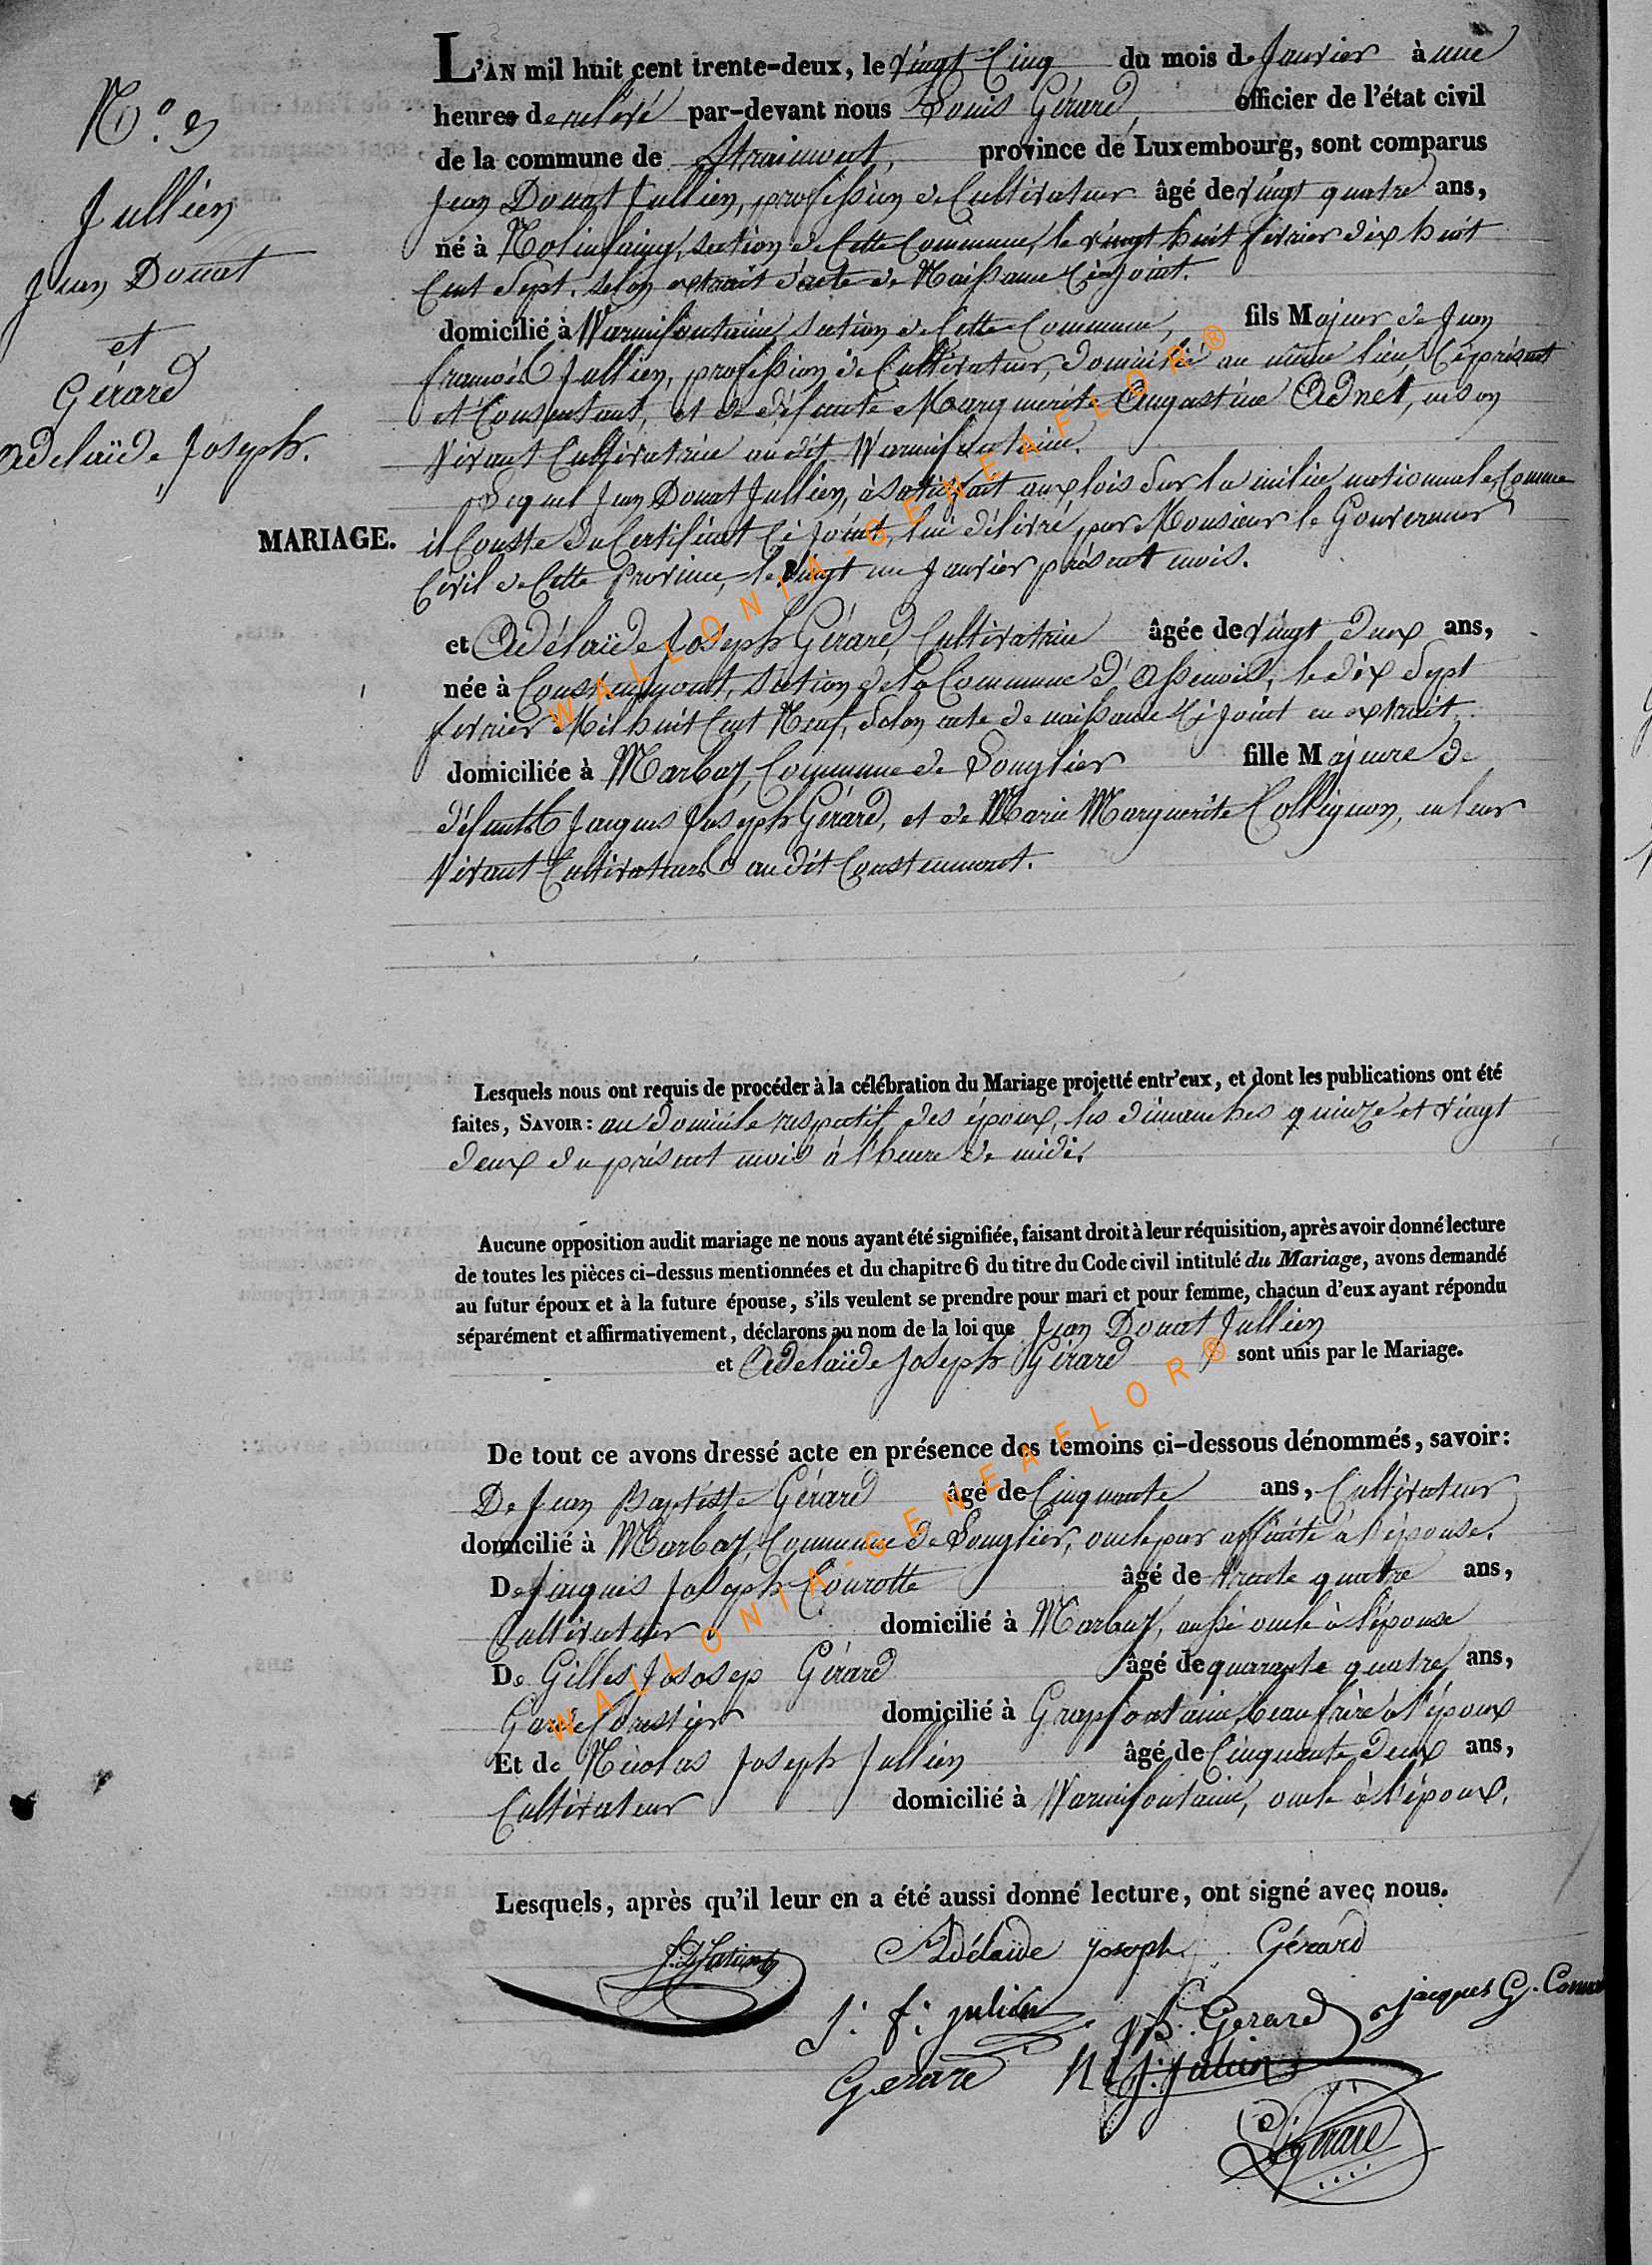 N.o
Jullien
Jean Donat
et
Gérard
Adelaïde Joseph.
MARIAGE.
L'AN mil huit cent trente-deux, le vingt Cinq du mois de Janvier à une
heure de relevé par-devant nous Louis Gérard, officier de l'état civil
de la commune de Straimont, province de Luxembourg, sont comparus
Jean Donat Jullien, profession de Cultivateur âgé de vingt quatre ans,
né à Molinfaing, section de Cette Commune, le vingt huit février dix huit
Cent Sept, selon extrait d'acte de Naissance Ci joint.
domicilié à Warmifontaine, section de Cette Commune, fils Majeur de Jean
françois Jullien, profession de Cultivateur, domicilié au même lieu, Ci présent
et Consentant, et de défunte Marguerite Augustine Adnet, en son
Vivant Cultivatrice au dit Warmifontaine.
Lequel Jean Donat Jullien, à satisfait aux lois Sur la milice nationnale, Comme
il Conste du Certificat Ci joint, lui délivré, par Monsieur le Gouverneur
Civil de Cette Province, le vingt un Janvier présent mois.
et Adélaïde Joseph Gérard, Cultivatrice âgée de vingt deux ans,
née à Coustumont, section de la Commune d'Assenois, le dix Sept
fevrier Mil huit Cent Neuf, Selon acte de naissance Ci joint en extrait.
domiciliée à Marbay, Commune de Louglier fille Majeure de
défunts Jacques Joseph Gérard, et de Marie Marguerite Collignon, en leur
Vivant Cultivateurs au dit Coustenmont.
Lesquels nous ont requis de procéder à la célébration du Mariage projetté entr'eux, et dont les publications ont été
faites, SAVOIR : au domicile respectif des époux, les dimanches quinze et vingt
deux du présent mois à l'heure de midi.
Aucune opposition audit mariage ne nous ayant été signifiée, faisant droit à leur réquisition, après avoir donné lecture
de toutes les pièces ci-dessus mentionnées et du chapitre 6 du titre du Code civil intitulé du Mariage, avons demandé
au futur époux et à la future épouse, s'ils veulent se prendre pour mari et pour femme, chacun d'eux ayant répondu
séparément et affirmativement, déclarons au nom de la loi que Jean Donat Jullien
et Adelaïde Joseph Gérard sont unis par le Mariage.
De tout ce avons dressé acte en présence des temoins ci-dessous dénommés, savoir :
De Jean Baptiste Gérard âgé de Cinquante ans, Cultivateur
domicilié à Marbay, Commune de Louglier, oncle par affinité à l'épouse.
De Jaques Joseph Courotte âgé de trente quatre ans,
Cultivateur domicilié à Marbay, aussi oncle à l'épouse
De Gilles Jososep Gérard âgé de quarante quatre ans,
Garde forestier domicilié à Grapfontaine, beau frère à l'époux
Et de Nicolas Joseph Jullien âgé de Cinquante deux ans,
Cultivateur domicilié à Warmifontaine, oncle à l'époux.
Lesquels, après qu'il leur en a été aussi donné lecture, ont signé avec nous.
Adélaïde Joseph Gérard
J: f: julien
Gerard jacques
Gerard N J: Julien
L. Gérard
WALLONIA-GENEAFLOR®
WALLONIA-GENEAFLOR®